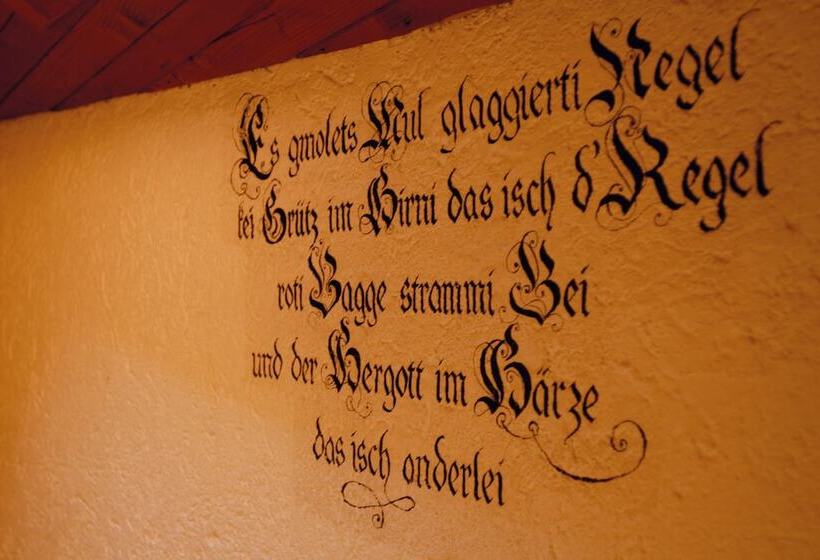 Es gmolets Mul glaggierti Negel
kei Grütz im Hirni das isch d'Regel
roti Bagge strammi Bei
und der Hergott im Härze
das isch onderlei